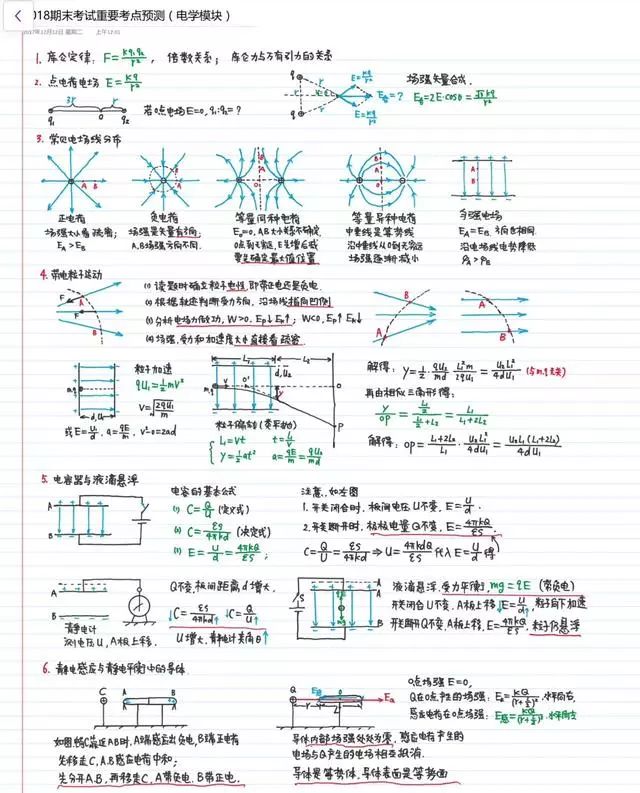 2018期末考试重要考点预测（电学模块）
2017年12月12日 星期二 上午12:01
1. 库仑定律: F=kq₁q₂/r², 倍数关系; 库仑力与万有引力的关系
2. 点电荷电场 E=kq/r²
3r r
q₁ 0 q₂
若0点电场E=0, q₁:q₂=?
E=kq/r²
E合=?
E=kq/r²
场强矢量合成.
E合=2E·cosθ=√3kq/r²
3. 常见电场线分布
正电荷
场强大小看疏密;
E_A>E_B
负电荷
场强是矢量有方向;
A.B场强方向不同.
等量同种电荷
E₀=0, AB大小关系不确定,
0点到无穷远, E先增后减
要先确定最大值位置
等量异种电荷
中垂线是等势线
沿中垂线从0到无穷远
场强逐渐减小
匀强电场
E_A=E_B, 方向也相同.
沿电场线电势降低
φ_A>φ_B
4. 带电粒子运动
(1) 读题时确立粒子电性, 即带正还是负电.
(2) 根据轨迹判断受力方向, 沿场线指向凹侧
(3) 分析电场力做功, W>0, Ep↓Ek↑; W<0, Ep↑Ek↓
(4) 场强, 受力和加速度大小直接看疏密.
粒子加速
qU₁=½mv²
v=√(2qU₁/m)
d, U₁
或E=U/d, a=qE/m, v²-0=2ad
L₁ L₂
d, U₂
m,q v 0'
P
粒子偏转(类平抛)
L₁=vt t=L/v
y=½at² a=qE/m=qU₂/md
解得: y=½·qU₂/md·L₁²m/2qU₁=U₂L₁²/4dU₁ (与m,q无关)
再由相似三角形得:
y/OP=(L₁/2)/(L₁/2+L₂)=L₁/(L₁+2L₂)
解得: OP=(L₁+2L₂)/L₁·U₂L₁²/4dU₁=U₂L₁(L₁+2L₂)/4dU₁
5. 电容器与液滴悬浮
电容的基本公式
(1) C=Q/U (定义式)
(2) C=εS/4πkd (决定式)
(3) E=U/d=4πkQ/εS;
注意, 如左图
1. 开关闭合时, 极间电压U不变, E=U/d.
2. 开关断开时, 极板电量Q不变, E=4πkQ/εS
C=Q/U=εS/4πkd ⇒ U=4πkdQ/εS 代入E=U/d得
A
B
静电计
测电压U, A板上移.
Q不变, 板间距离d增大,
↓C=εS/4πkd↑ ↓C=Q/U↑
U增大, 静电计夹角θ↑
S
qE
mg
A
B
液滴悬浮, 受力平衡, mg=qE (带负电)
开关闭合U不变, A板上移, ↓E=U/d↑, 粒子向下加速
开关断开Q不变, A板上移, E=4πkQ/εS, 粒子仍悬浮
6. 静电感应与静电平衡中的导体.
C A B
如图将C靠近AB时, A端感应出负电, B端正电荷
先移走C, A.B感应电荷中和;
先分开A.B, 再移走C, A带负电, B带正电.
Q E感 0 E_Q
r L
导体内部场强处处为零, 感应电荷产生的
电场与Q产生的电场相互抵消.
导体是等势体, 导体表面是等势面
0点场强E=0,
Q在0点产生的场强: E_Q=kQ/(r+L/2)², 水平向右,
感应电荷在0点场强: E感=kQ/(r+L/2)², 水平向左